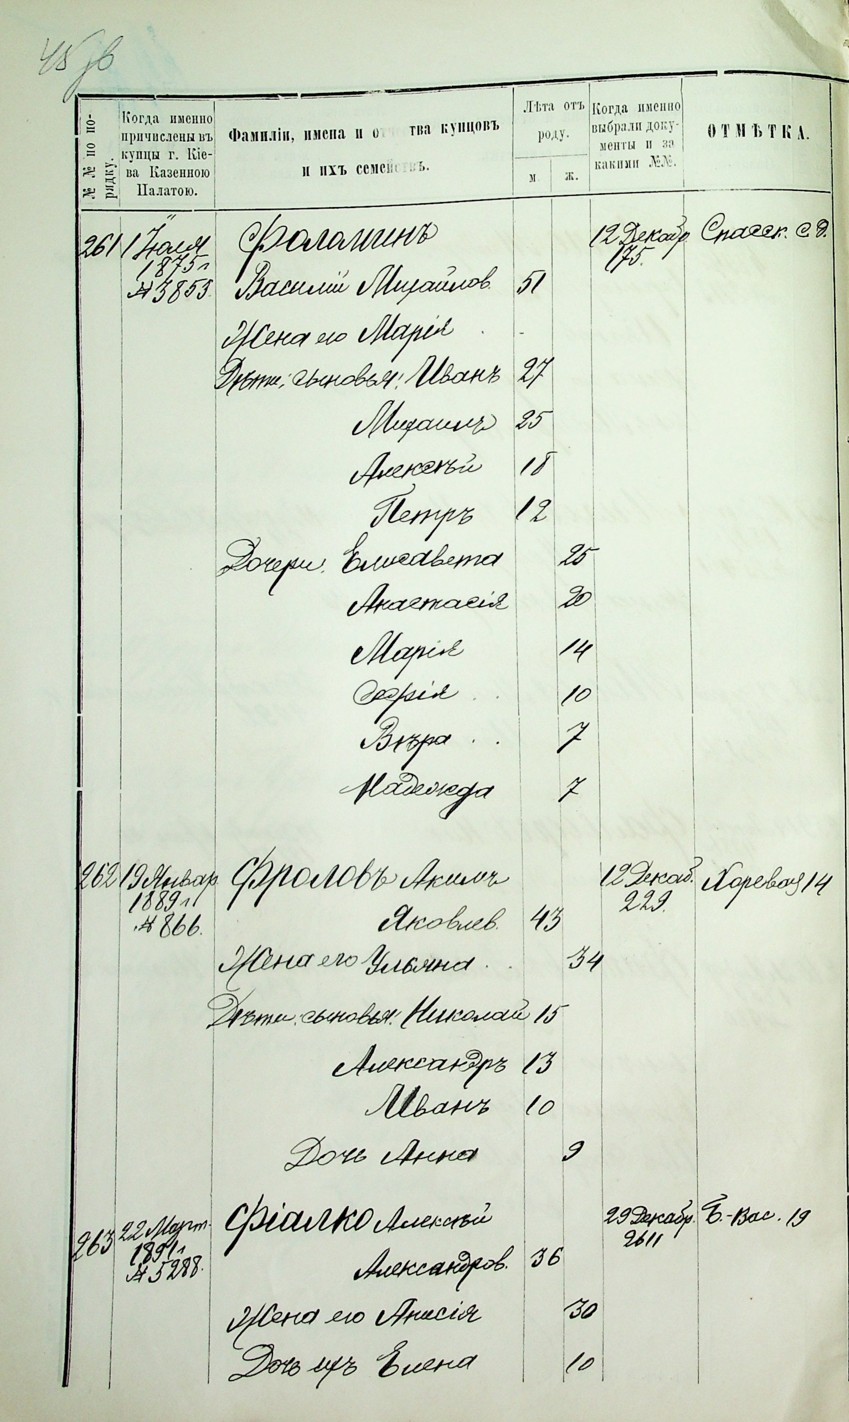 45 об
№№ по по-
рядку.
Когда именно
причислены въ
купцы г. Кіе-
ва Казенною
Палатою.
Фамиліи, имена и от тва купцовъ
и ихъ семействъ.
Лѣта отъ
роду.
м
ж.
Когда именно
выбрали доку-
менты и за
какими №№.
ОТМѢТКА.
261 1 Іюля Фоломинъ 12 Декабр. Спасск. с. д.
1875 г 175.
№ 3853. Василій Михайлов. 51
Жена его Марія . -
Дѣти: сыновья: Иванъ 27
Михаилъ 25
Алексѣй 18
Петръ 12
Дочери: Елисавета 25
Анастасія 20
Марія 14
Софія . . 10
Вѣра . . 7
Надежда 7
262 19 Январ. Фроловъ Акимъ 12 Декаб. Хоревая 14
1889 г 229.
№ 866. Яковлев. 43
Жена его Ульяна . . 34
Дѣти: сыновья: Николай 15
Александръ 13
Иванъ 10
Дочь Анна 9
263 22 Март. Фіалко Алексѣй 29 Декабр. Б.-Вас. 19
1891 г 2611
№ 5288. Александров. 36
Жена его Анисія 30
Дочь ихъ Елена 10